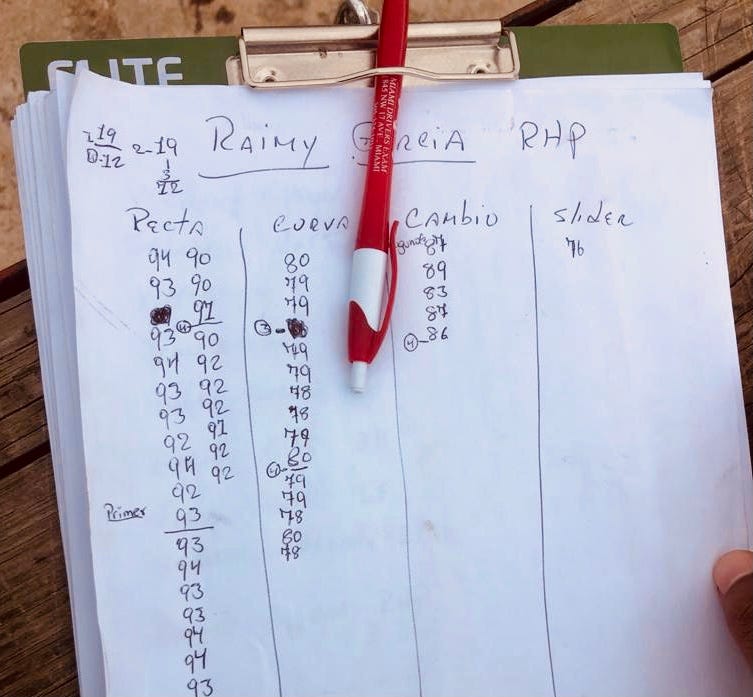 ELITE
MIAMI DRIVERS EXAM
345 NW 17 AVE. MIAMI
19
12
2-19
3
12
RAIMY GARCIA RHP
RECTA CURVA CAMBIO Slider
94 90 80 87 76
93 90 79 89
91 79 83
93 90 3- 87
94 92 79 4-86
93 92 79
93 92 78
92 91 78
94 92 79
92 92 4-80
Primer 93 79
93 79
94 78
93 80
93 78
94
94
93